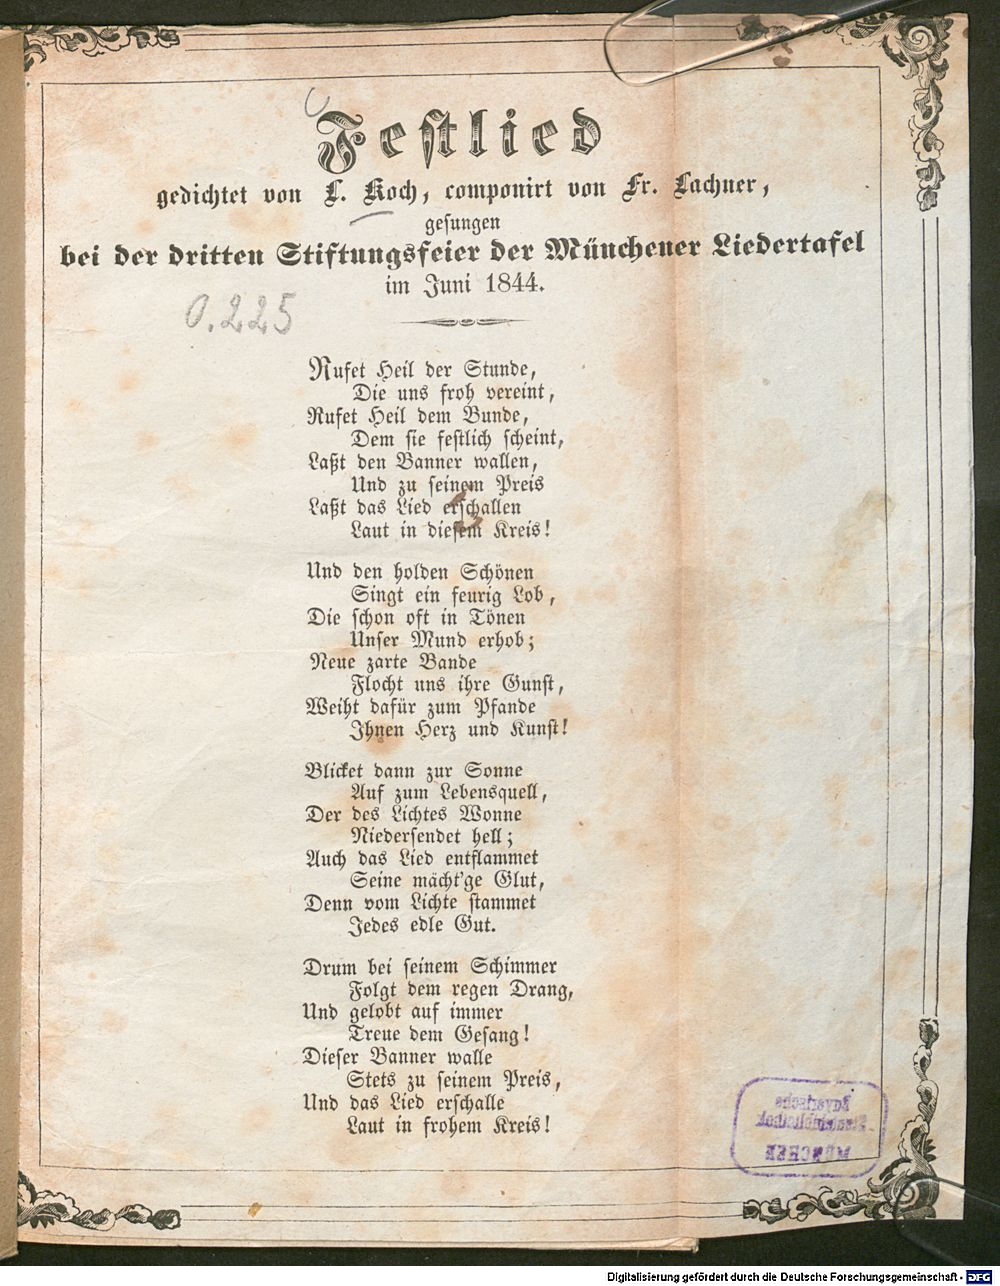 Festlied
gedichtet von L. Koch, componirt von Fr. Lachner,
gesungen
bei der dritten Stiftungsfeier der Münchener Liedertafel
im Juni 1844.
O. 225
Rufet Heil der Stunde,
Die uns froh vereint,
Rufet Heil dem Bunde,
Dem sie festlich scheint,
Laßt den Banner wallen,
Und zu seinem Preis
Laßt das Lied erschallen
Laut in diesem Kreis!
Und den holden Schönen
Singt ein feurig Lob,
Die schon oft in Tönen
Unser Mund erhob;
Neue zarte Bande
Flocht uns ihre Gunst,
Weiht dafür zum Pfande
Ihnen Herz und Kunst!
Blicket dann zur Sonne
Auf zum Lebensquell,
Der des Lichtes Wonne
Niedersendet hell;
Auch das Lied entflammet
Seine mächt'ge Glut,
Denn vom Lichte stammet
Jedes edle Gut.
Drum bei seinem Schimmer
Folgt dem regen Drang,
Und gelobt auf immer
Treue dem Gesang!
Dieser Banner walle
Stets zu seinem Preis,
Und das Lied erschalle
Laut in frohem Kreis!
Bayerische
Staatsbibliothek
MÜNCHEN
Digitalisierung gefördert durch die Deutsche Forschungsgemeinschaft - DFG